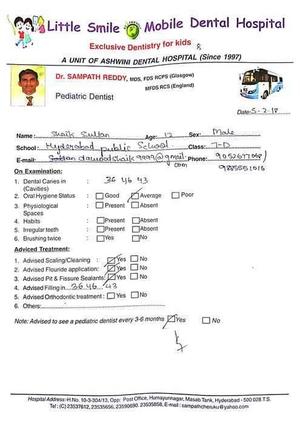 Little Smile Mobile Dental Hospital
Exclusive Dentistry for kids
A UNIT OF ASHWINI DENTAL HOSPITAL (Since 1997)
Dr. SAMPATH REDDY, MDS, FDS RCPS (Glasgow)
MFDS RCS (England)
Pediatric Dentist
Date: 5-2-18
Name: Shaik Sultan Age: 12 Sex: Male
School: Hyderabad public School Class: 7-D
E-mail: Phone:
On Examination:
1. Dental Caries in 36 46 43
(Cavities)
2. Oral Hygiene Status Good Average Poor
3. Physiological Present Absent
Spaces
4. Habits Present Absent
5. Irregular teeth Present Absent
6. Brushing twice Yes No
Adviced Treatment:
1. Advised Scaling/Cleaning Yes No
2. Advised Flouride application: Yes No
3. Advised Pit & Fissure Sealants Yes No
4. Advised Filling in 36, 46, 43
5. Advised Orthodontic treatment: Yes No
6. Others:
Note: Advised to see a pediatric dentist every 3-6 months Yes No
Hospital Address: H.No. 10-3-304/13, Opp: Post Office, Humayunnagar, Masab Tank, Hyderabad - 500 028 T.S.
Tel: (C) 23537612, 23535656, 23590690, 23535858, E-mail : sampathcheruku@yahoo.com